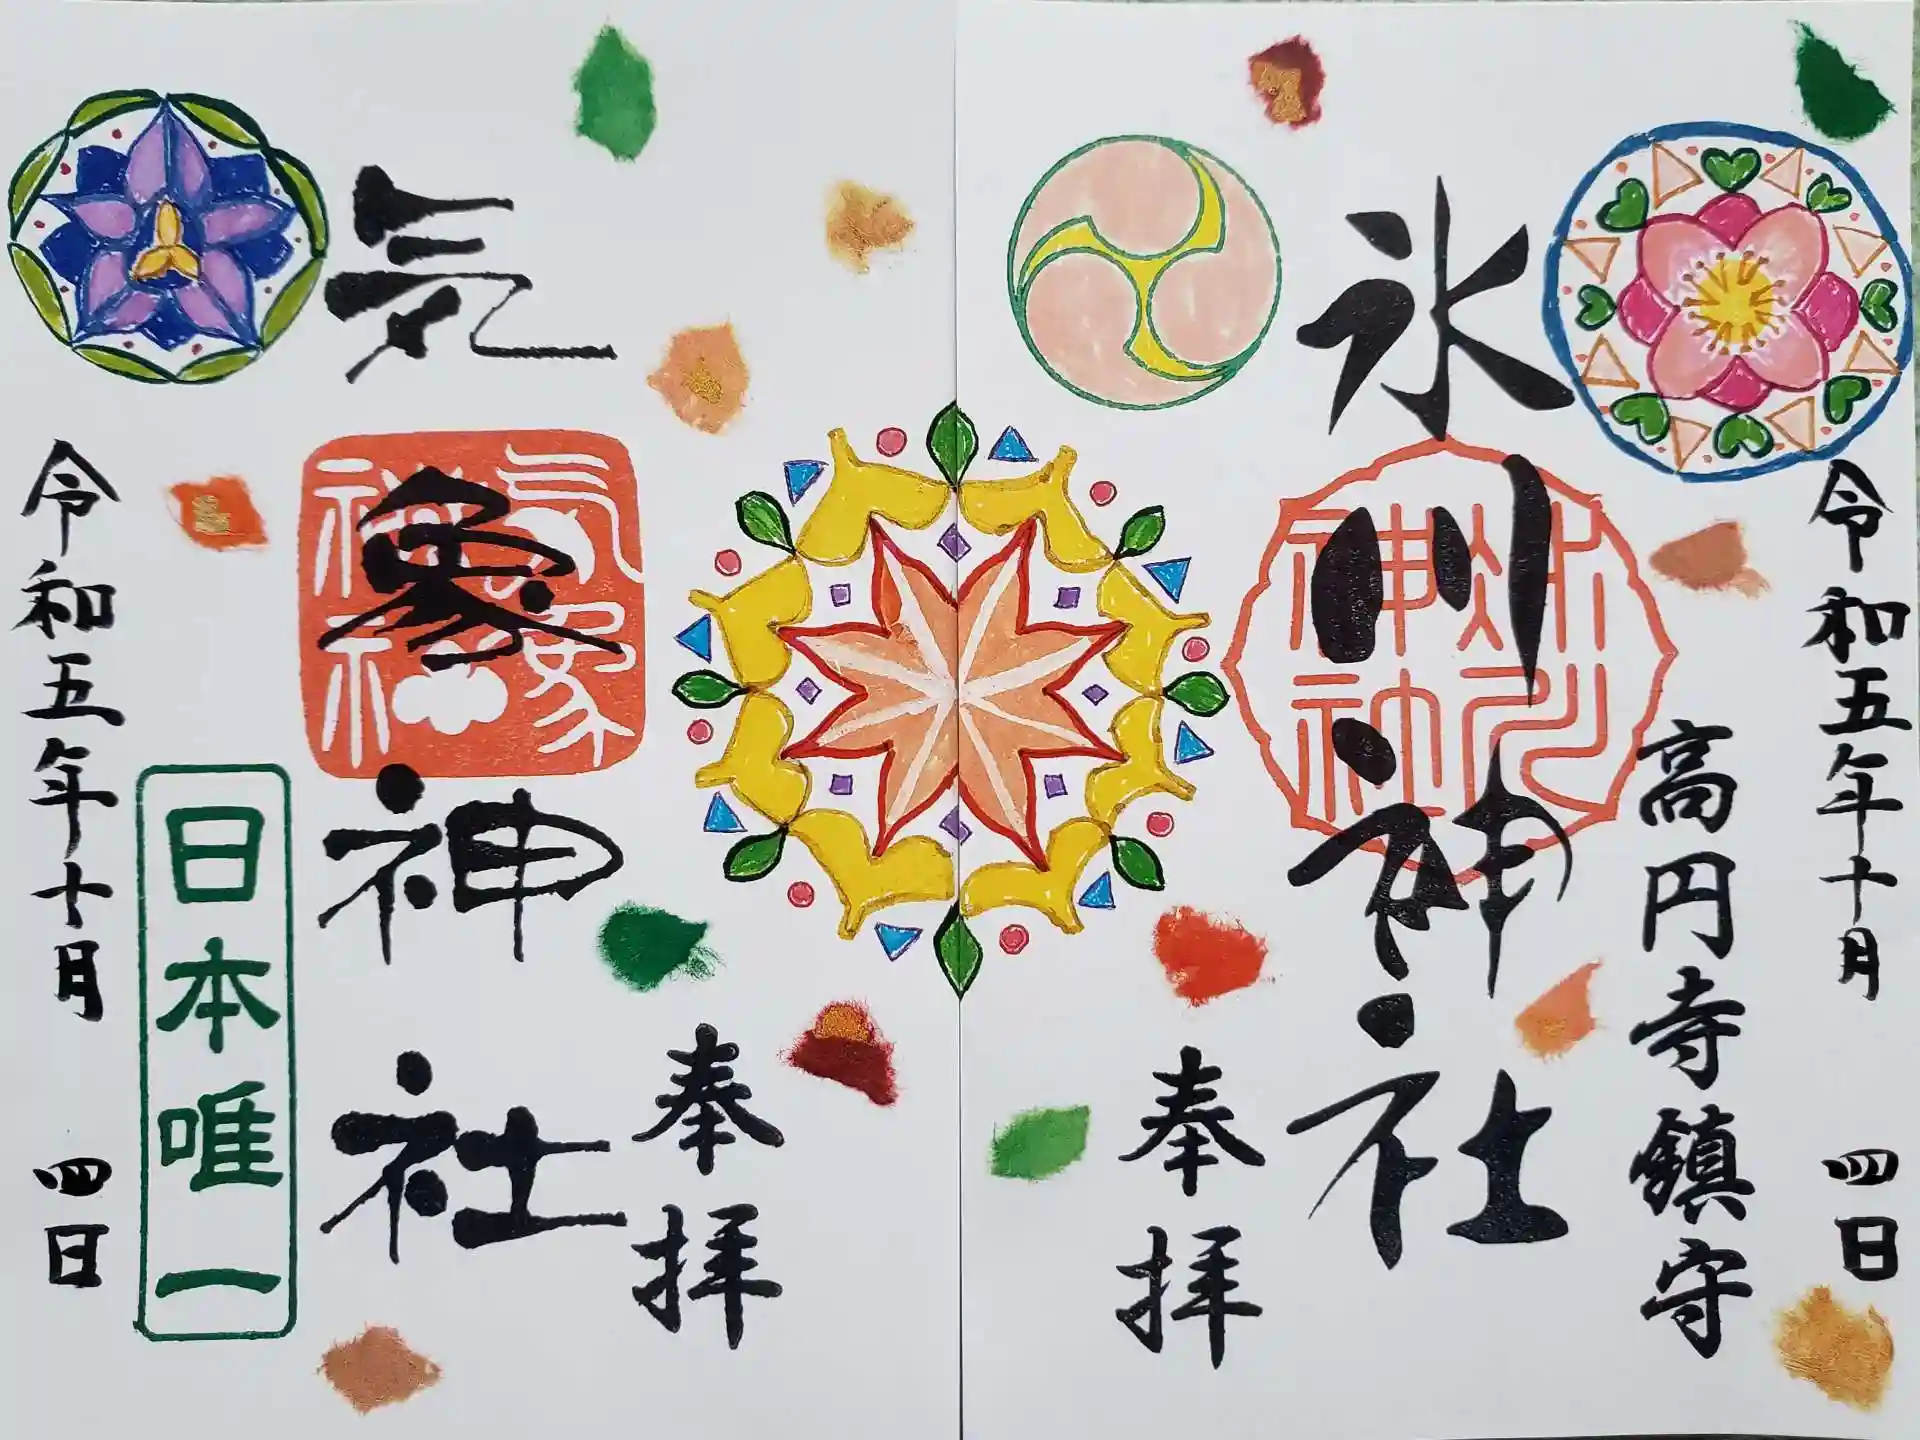 令和五年十月 四日
高円寺鎮守
氷川神社
氷川神社
奉拝
奉拝
気象神社
気象神社
日本唯一
令和五年十月 四日